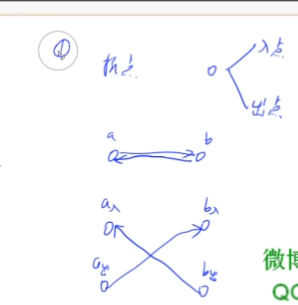 ①
拆点
入点
出点
a b
a入 b入
a出 b出
微博
QQ